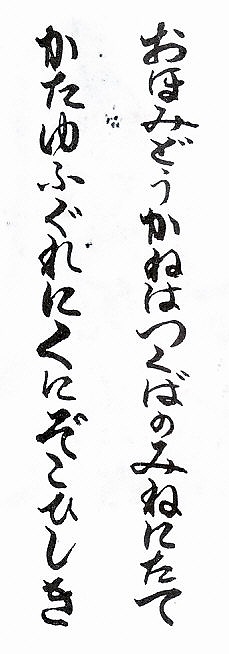 おほみどうかねはつくばのみねにたて
かたゆふぐれにくにぞこひしき